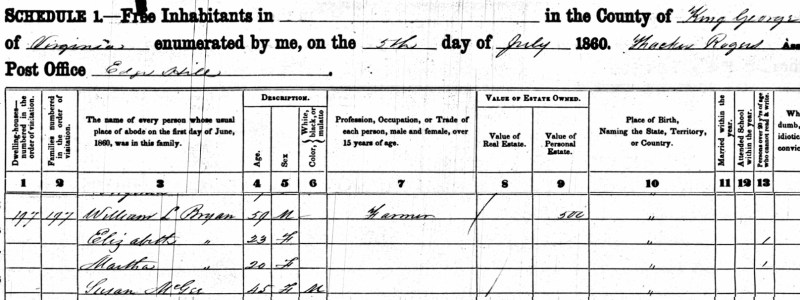 SCHEDULE 1.—Free Inhabitants in in the County of King George
of Virginia enumerated by me, on the 5th day of July 1860. Thacker Rogers Ass
Post Office Edge Hill .
Dwelling-houses— numbered in the order of visitation.
Families numbered in the order of visitation.
The name of every person whose usual place of abode on the first day of June, 1860, was in this family.
DESCRIPTION.
Age.
Sex
Color, White, black, or mulatto
Profession, Occupation, or Trade of each person, male and female, over 15 years of age.
VALUE OF ESTATE OWNED.
Value of Real Estate.
Value of Personal Estate.
Place of Birth, Naming the State, Territory, or Country.
Married within the year.
Attended School within the year.
Persons over 20 y'rs of age who cannot read & write.
Wh
dumb,
idiotic
convic
1 2 3 4 5 6 7 8 9 10 11 12 13
197 197 William L Bryan 59 M Farmer / 500 "
Elizabeth " 23 F " /
Martha " 20 F " /
Susan McGee 45 F M